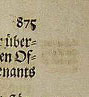 875
r über-
en Of-
enants